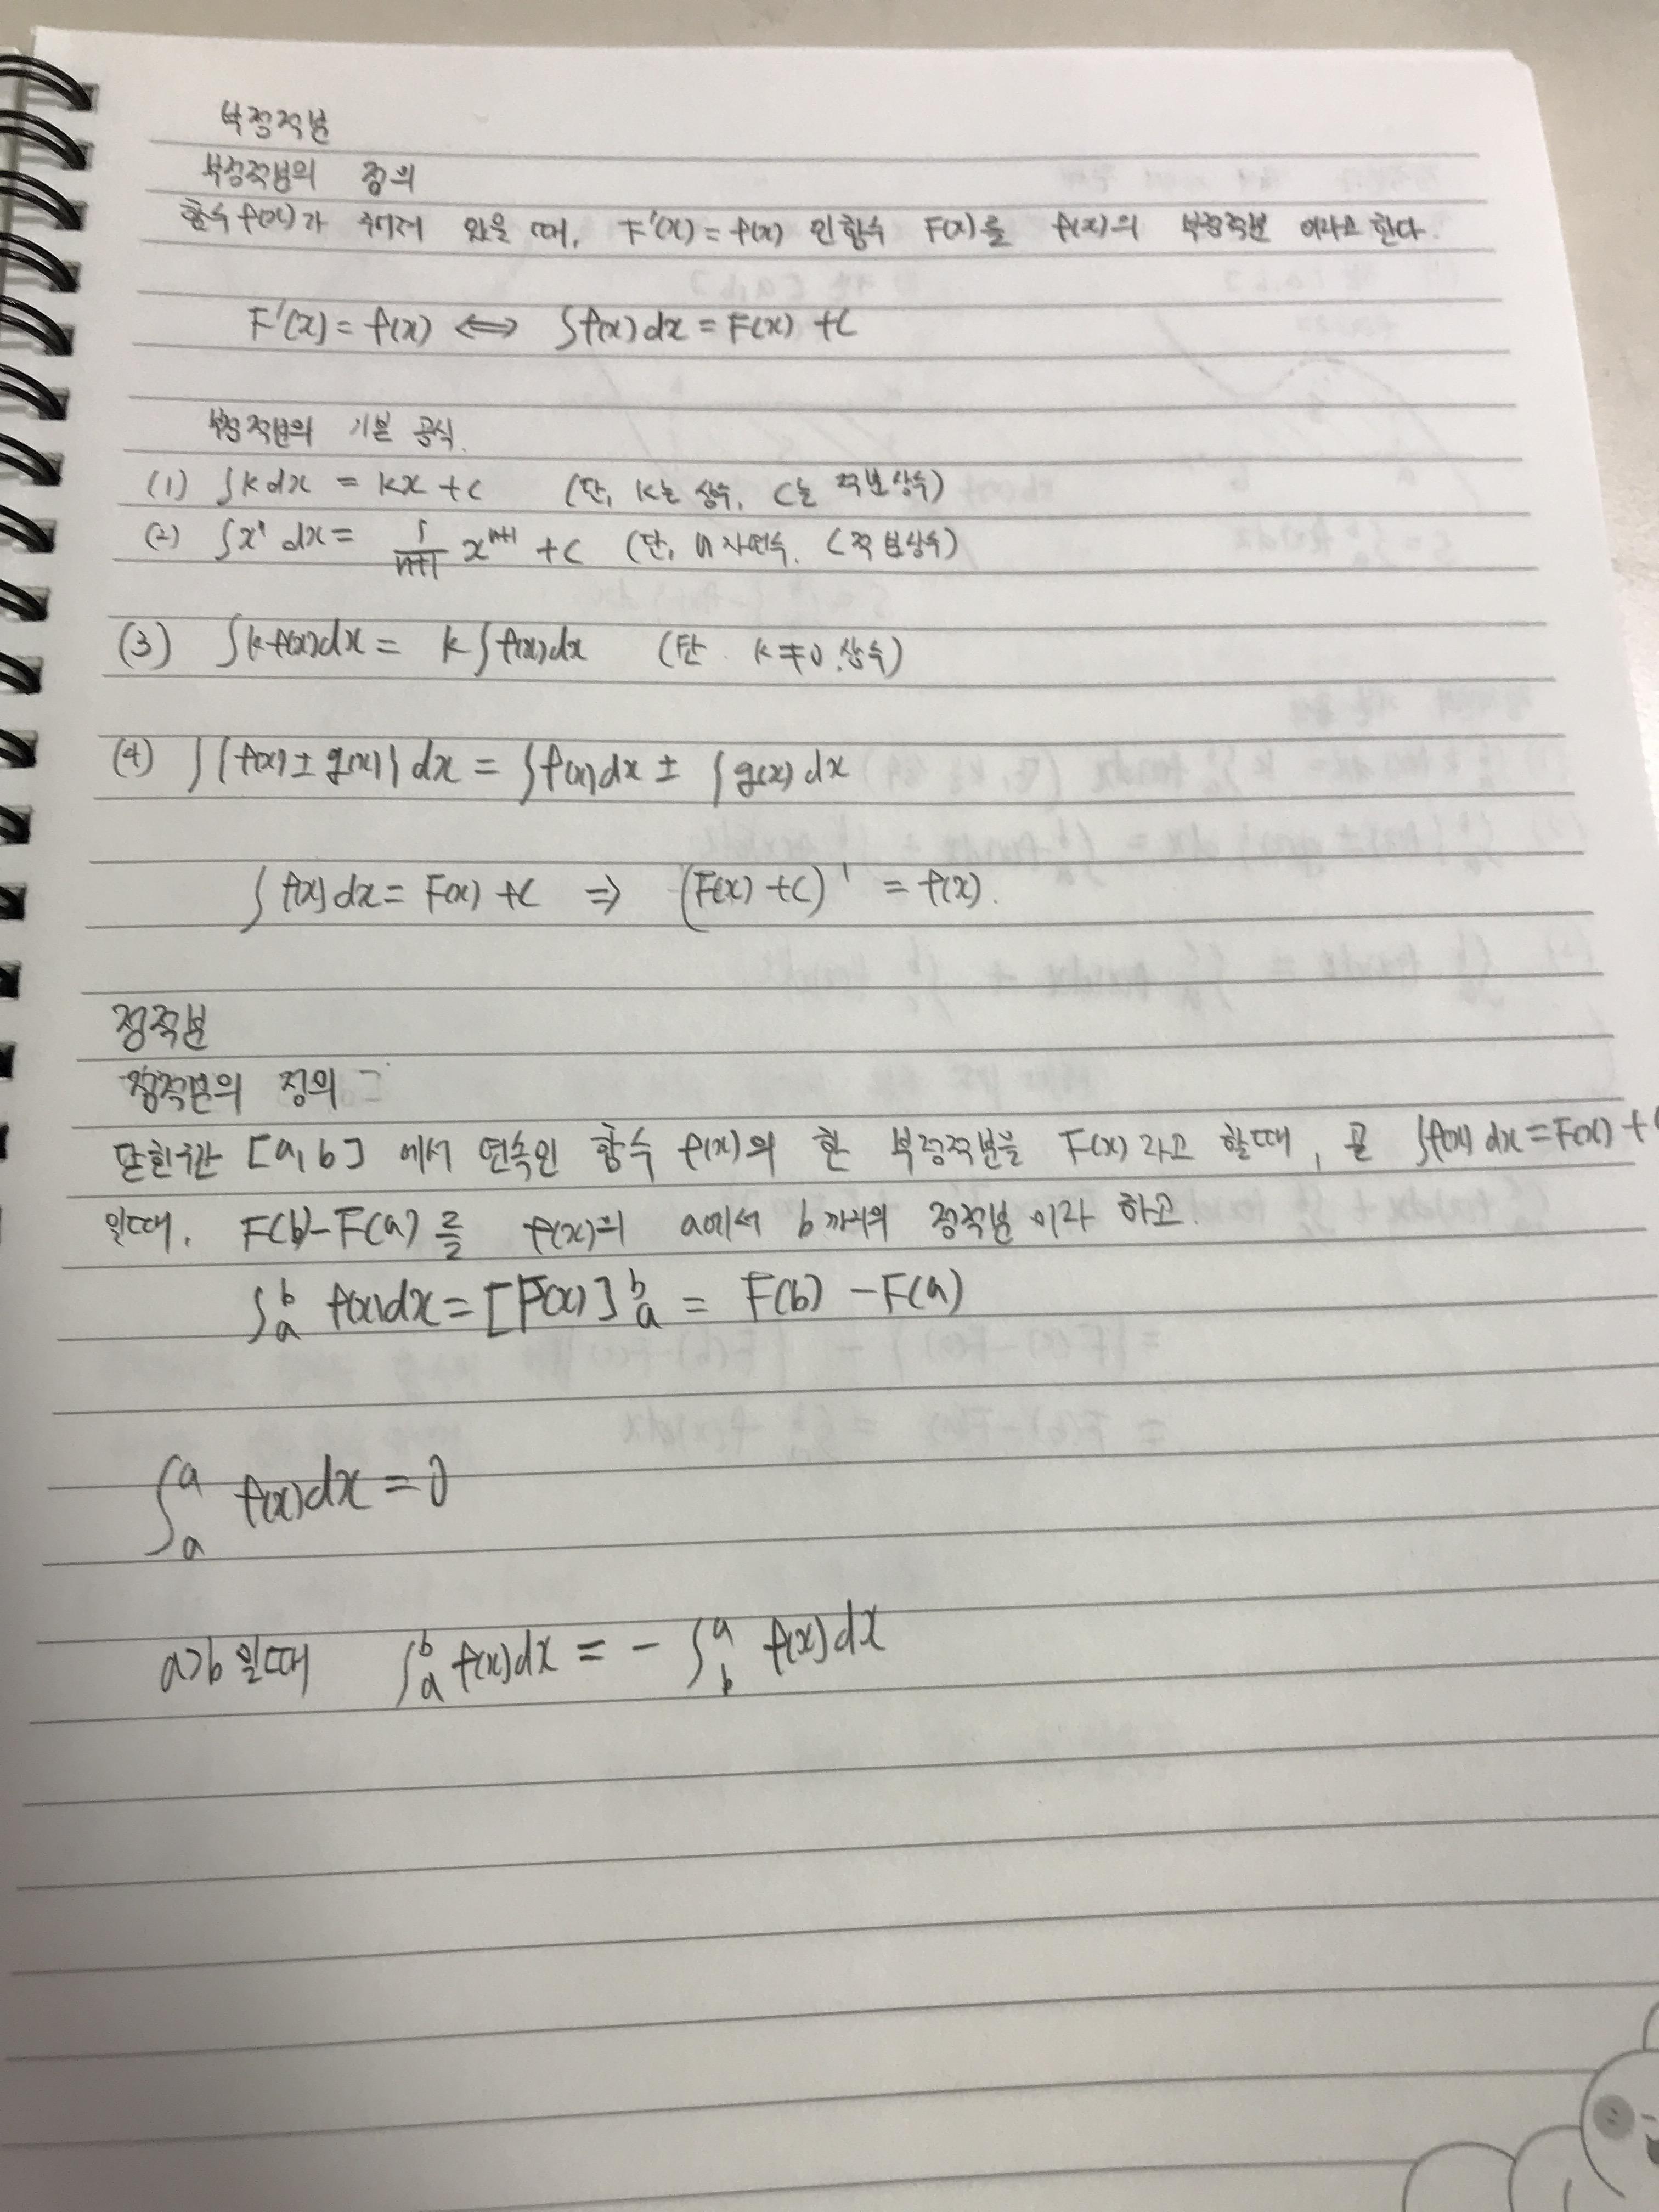 부정적분
부정적분의 정의
함수 f(x)가 주어져 있을 때, F'(x) = f(x) 인 함수 F(x)를 f(x)의 부정적분 이라고 한다.
F'(x) = f(x) ⟺ ∫f(x)dx = F(x) + C
부정적분의 기본 공식.
(1) ∫k dx = kx + C (단, k는 상수, C는 적분상수)
(2) ∫xⁿ dx = 1/(n+1) xⁿ⁺¹ + C (단, n 자연수, C 적분상수)
(3) ∫kf(x)dx = k∫f(x)dx (단 k≠0. 상수)
(4) ∫{f(x) ± g(x)}dx = ∫f(x)dx ± ∫g(x)dx
∫f(x)dx = F(x) + C ⇒ (F(x) + C)' = f(x).
정적분
정적분의 정의
닫힌구간 [a, b] 에서 연속인 함수 f(x)의 한 부정적분을 F(x) 라고 할때, 곧 ∫f(x)dx = F(x) +
일때. F(b)-F(a)를 f(x)의 a에서 b까지의 정적분 이라 하고.
∫ₐᵇ f(x)dx = [F(x)]ₐᵇ = F(b) - F(a)
∫ₐᵃ f(x)dx = 0
a>b 일때 ∫ₐᵇ f(x)dx = - ∫_b^a f(x)dx